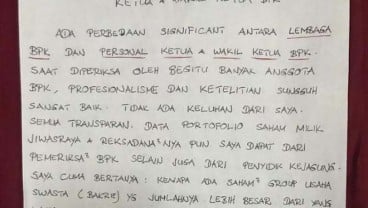 KETUA & WAKIL KETUA BPK
ADA PERBEDAAN SIGNIFICANT ANTARA LEMBAGA
BPK DAN PERSONAL KETUA & WAKIL KETUA BPK.
SAAT DIPERIKSA OLEH BEGITU BANYAK ANGGOTA
BPK, PROFESIONALISME DAN KETELITIAN SUNGGUH
SANGAT BAIK. TIDAK ADA KELUHAN DARI SAYA.
SEMUA TRANSPARAN. DATA PORTOFOLIO SAHAM MILIK
JIWASRAYA & REKSADANA²NYA PUN. SAYA DAPAT DARI
PEMERIKSA² BPK SELAIN JUGA DARI PENYIDIK KEJAGUNG.
SAYA CUMA BERTANYA : KENAPA ADA SAHAM² GROUP USAHA
SWASTA (BAKRIE) YG JUMLAHNYA LEBIH BESAR DARI YANG